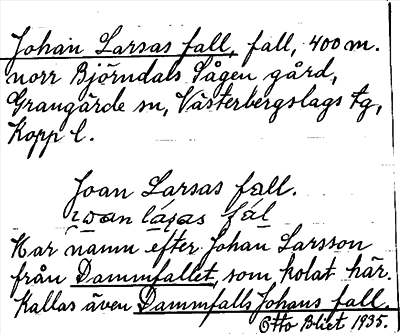 Johan Larsas fall, fall, 400 m.
norr Björndals Sågen gård,
Grangärde sn, Västerbergslags tg,
Kopp l.
Joan Larsas fall.
Har namn efter Johan Larsson
från Dammfallet, som kolat här.
Kallas även Dammfalls Johans fall.
Otto Blixt 1935.